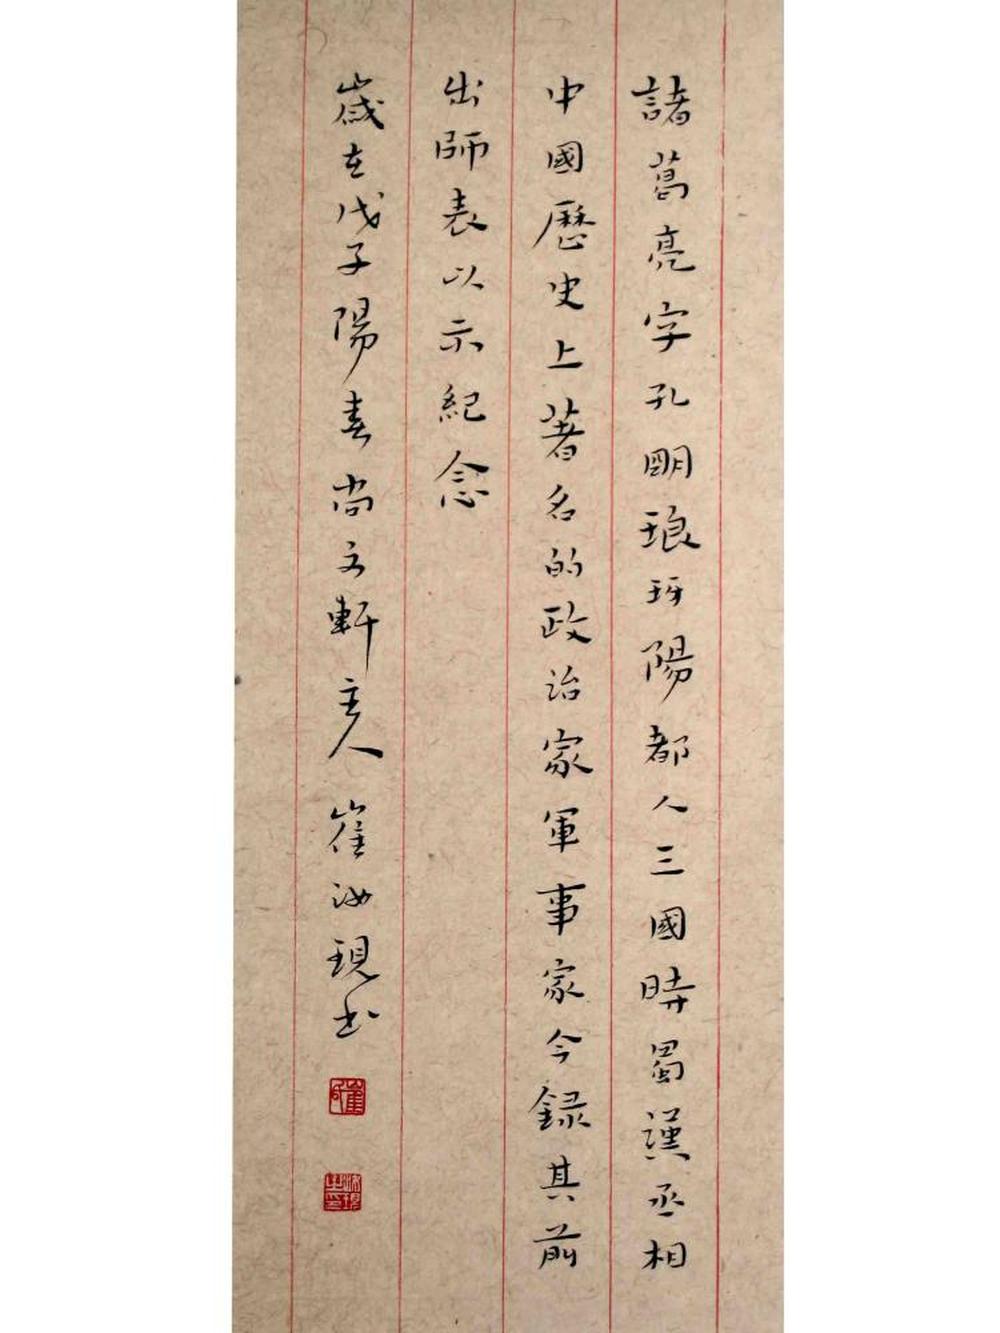 諸葛亮字孔明琅玡陽都人三國時蜀漢丞相
中國歷史上著名的政治家軍事家今録其前
出師表以示紀念
歲在戊子陽春尚文軒主人 崔汝現书